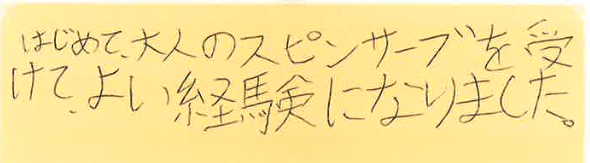 はじめて、大人のスピンサーブを受
けて、よい経験になりました。